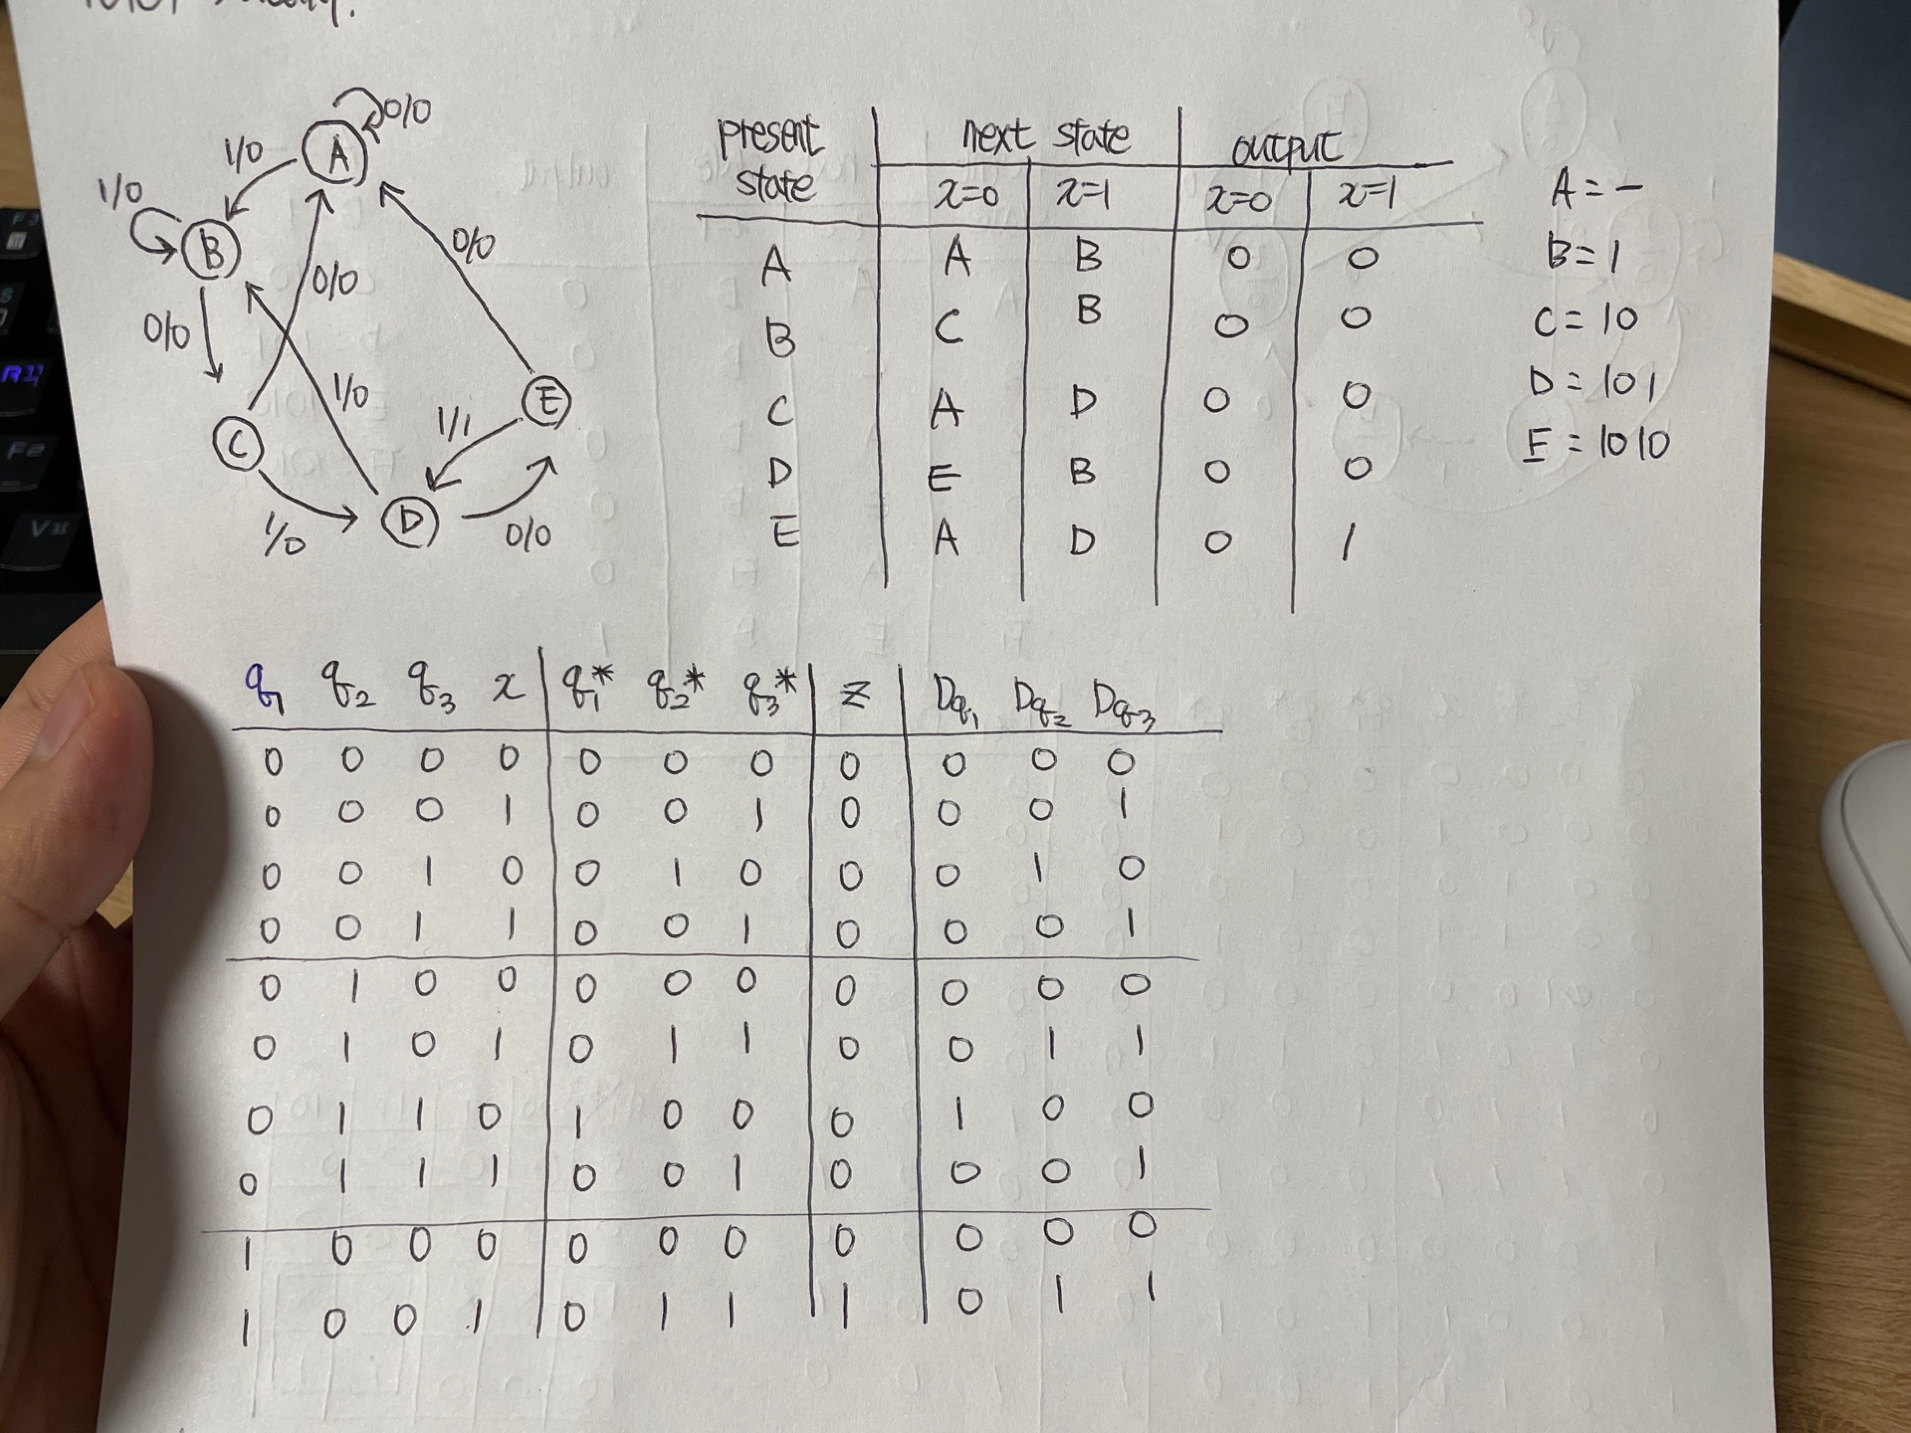 0/0
A
1/0
1/0
B
0/0
0/0
0/0
1/0
E
1/1
C
D
1/0
0/0
present state | next state | output
x=0 | x=1 | x=0 | x=1
A A B 0 0
B C B 0 0
C A D 0 0
D E B 0 0
E A D 0 1
A = -
B = 1
C = 10
D = 101
E = 1010
q1 q2 q3 x | q1* q2* q3* | z | Dq1 Dq2 Dq3
0 0 0 0 0 0 0 0 0 0 0
0 0 0 1 0 0 1 0 0 0 1
0 0 1 0 0 1 0 0 0 1 0
0 0 1 1 0 0 1 0 0 0 1
0 1 0 0 0 0 0 0 0 0 0
0 1 0 1 0 1 1 0 0 1 1
0 1 1 0 1 0 0 0 1 0 0
0 1 1 1 0 0 1 0 0 0 1
1 0 0 0 0 0 0 0 0 0 0
1 0 0 1 0 1 1 1 0 1 1